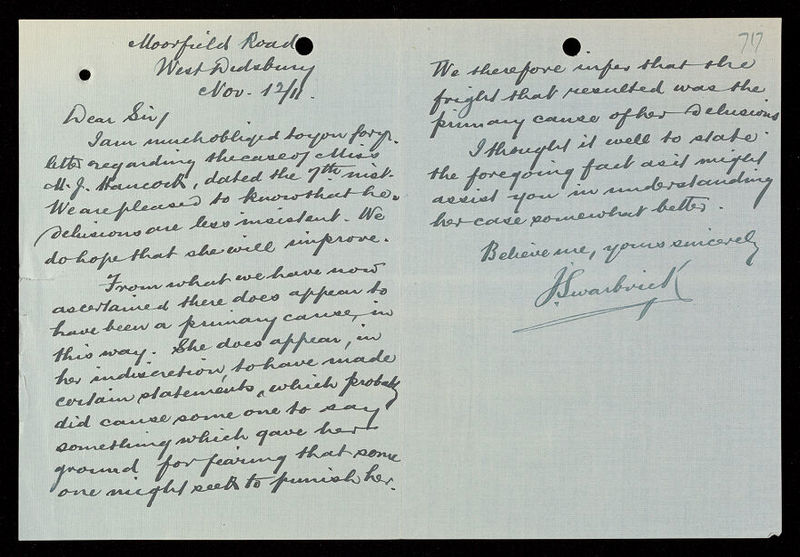 Moorfield Road
West Didsbury
Nov. 12/11.
Dear Sir/
I am much obliged to you for yr.
letter regarding the case of Miss
M. J. Hancock, dated the 7th inst.
We are pleased to know that her
delusions are less insistent. We
do hope that she will improve.
From what we have now
ascertained there does appear to
have been a primary cause, in
this way. She does appear, in
her indiscretion, to have made
certain statements, which probably
did cause some one to say
something which gave her
ground for fearing that some
one might seek to punish her.
717
We therefore infer that the
fright that resulted was the
primary cause of her delusions
I thought it well to state
the foregoing fact as it might
assist you in understanding
her case somewhat better.
Believe me, yours sincerely
J. Swarbrick